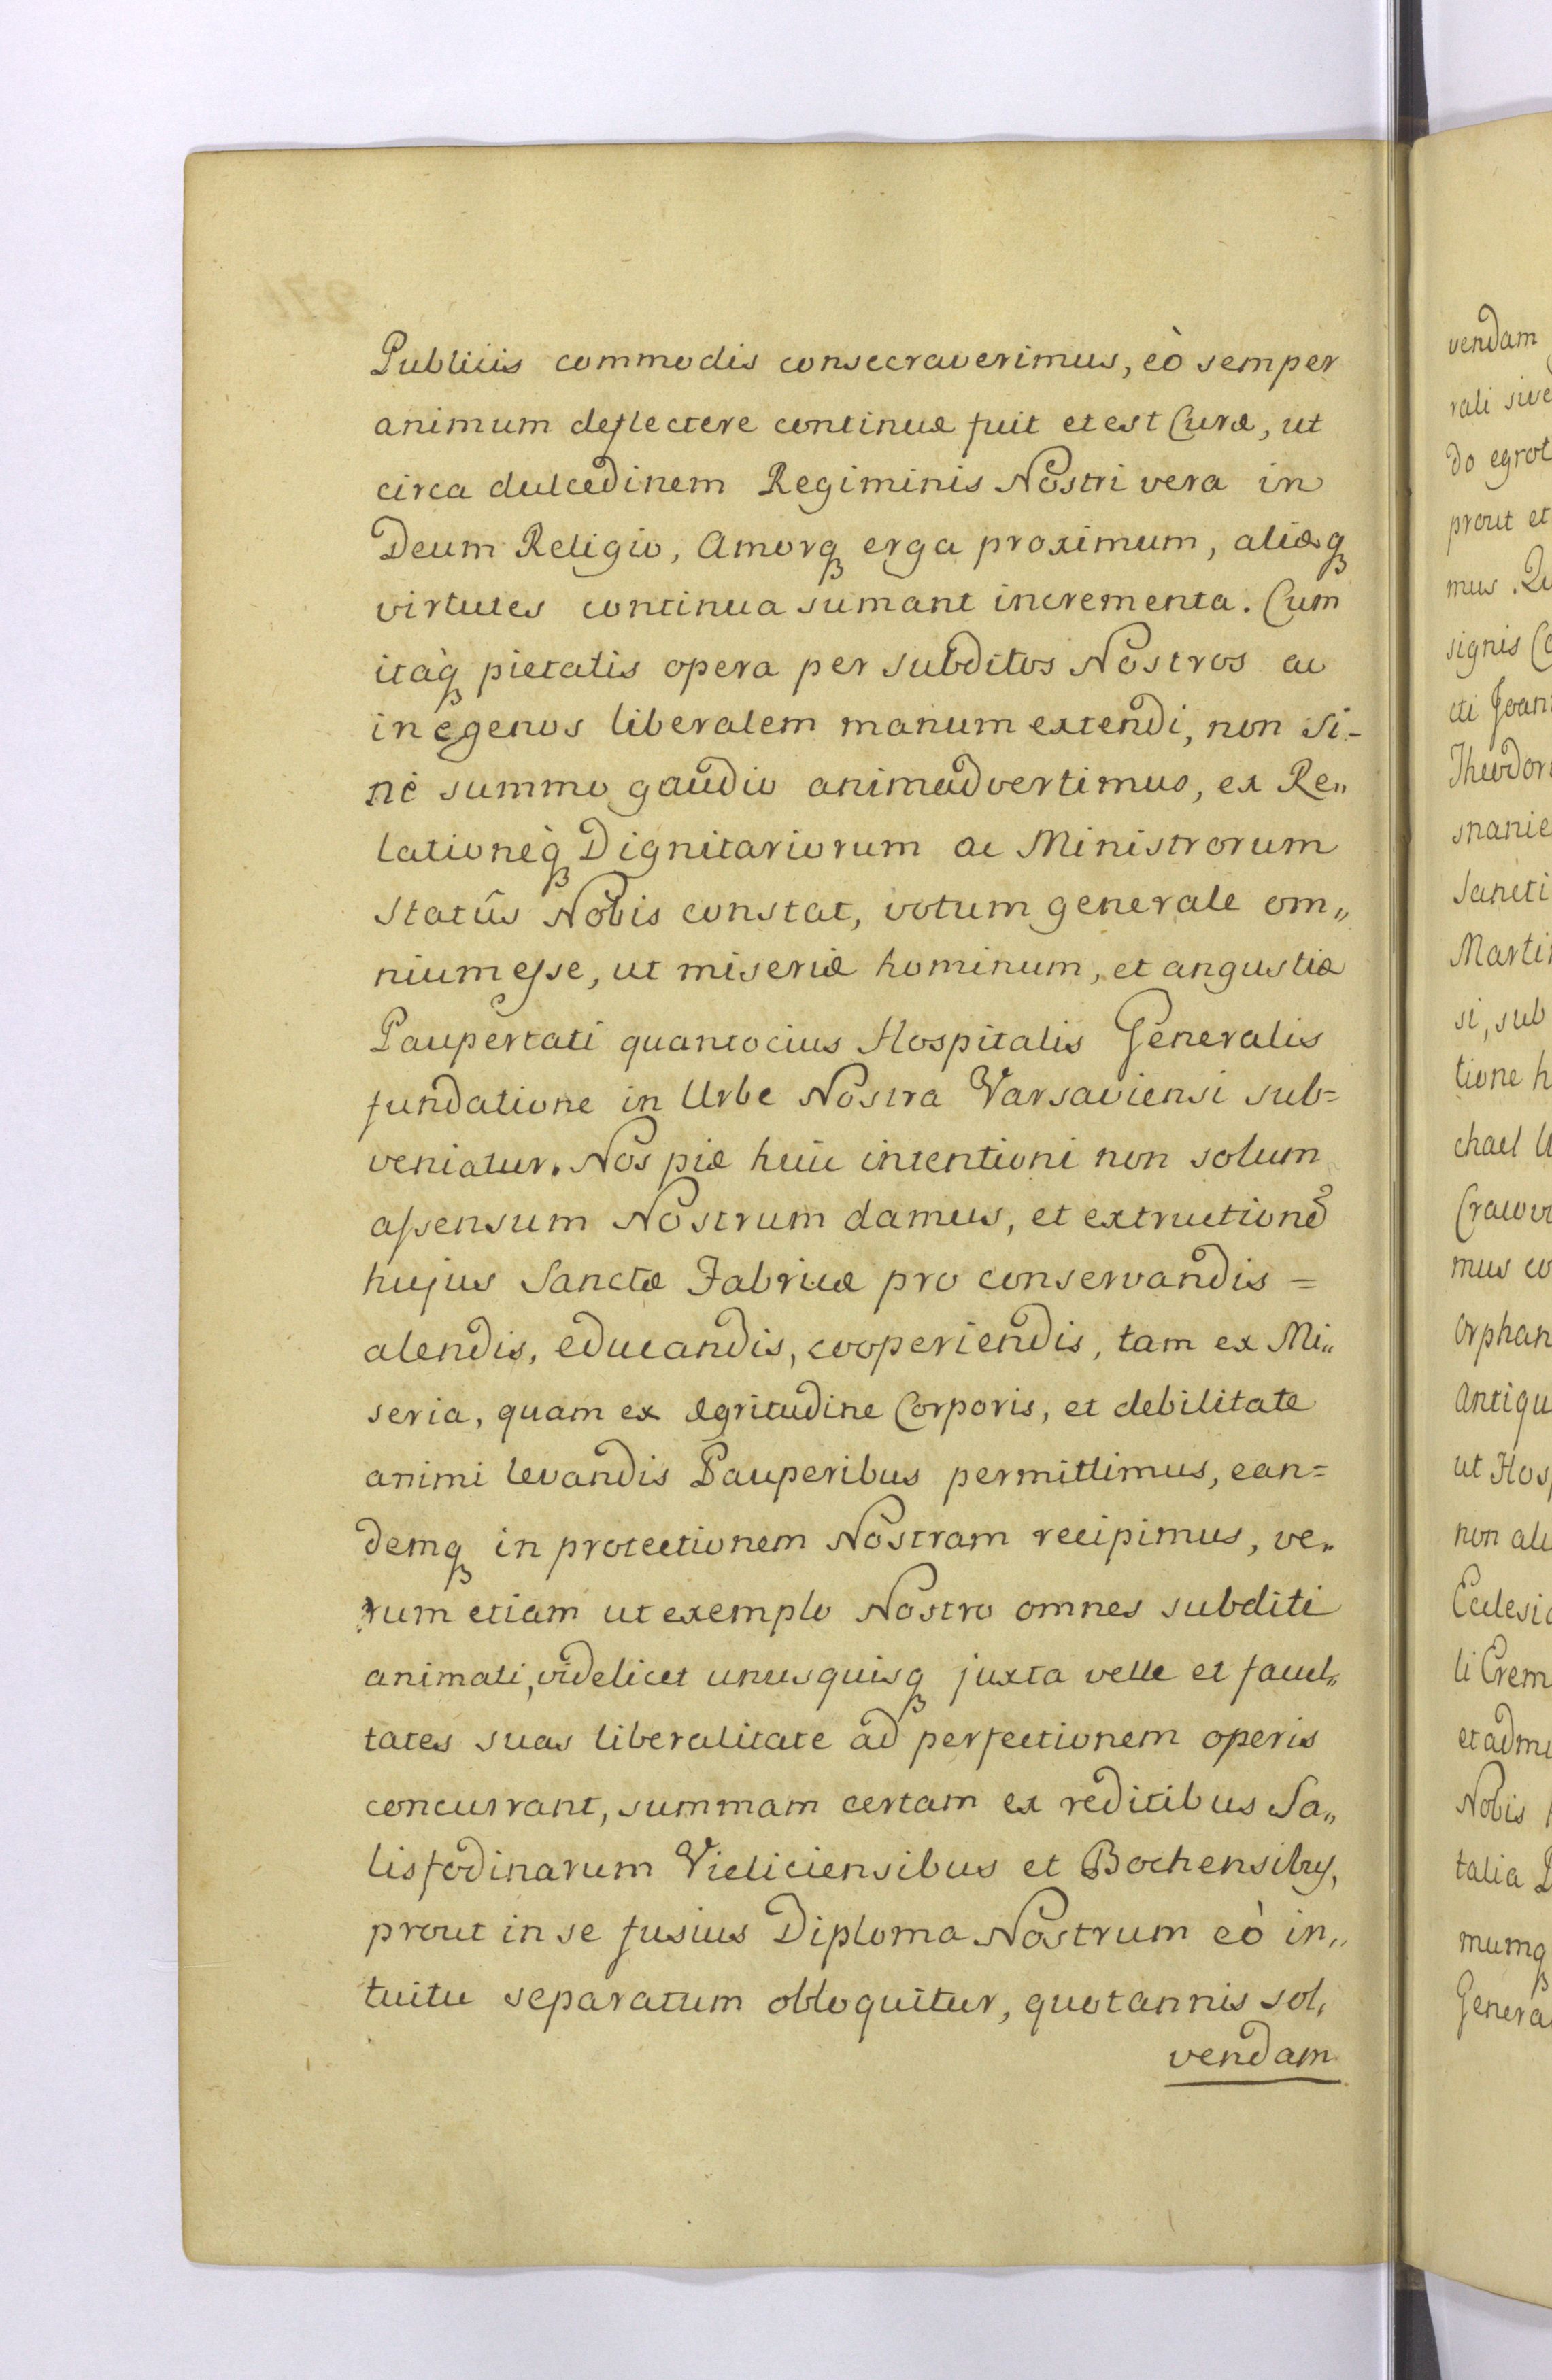 Publicis commodis consecraverimus, eò semper
animum deflectere continuæ fuit et est Curæ, ut
circa dulcedinem Regiminis Nostri vera in
Deum Religio, Amorq erga proximum, aliæq
virtutes continua sumant incrementa. Cum
itáq pietatis opera per subditos Nostros ac
in egenos liberalem manum extendi, non si-
nè summo gaudio animadvertimus, ex Re„
lationeq̀ Dignitariorum ac Ministrorum
Statûs Nobis constat, votum generale om„
nium esse, ut miseriæ hominum, et angustiæ
Paupertati quantocius Hospitalis Generalis
fundatione in Urbe Nostra Varsaviensi sub=
veniatur. Nos piæ huic intentioni non solum
assensum Nostrum damus, et extructionē
hujus Sanctæ Fabricæ pro conservandis =
alendis, educandis, cooperiendis, tam ex Mi„
seria, quam ex ægritudine Corporis, et debilitate
animi levandis Pauperibus permittimus, ean=
demq in protectionem Nostram recipimus, ve„
rum etiam ut exemplo Nostro omnes subditi
animati, videlicet unusquisq juxta velle et facul„
tates suas liberalitate ad perfectionem operis
concurrant, summam certam ex reditibus Sa„
lisfodinarum Vieliciensibus et Bochensibus,
prout in se fusius Diploma Nostrum eò in„
tuitu separatum obloquitur, quotannis sol,
vendam
vendam
rali sive
do egrot
prout et
mus. Qu
signis Co
cti Joan
Theodor
snanie
Sancti
Marti
si, sub
tione h
chael
Cracov
mus co
Orphan
Antiqu
ut Hos
non ali
Ecclesi
li Crem
et admi
Nobis
talia
mumq
Genera